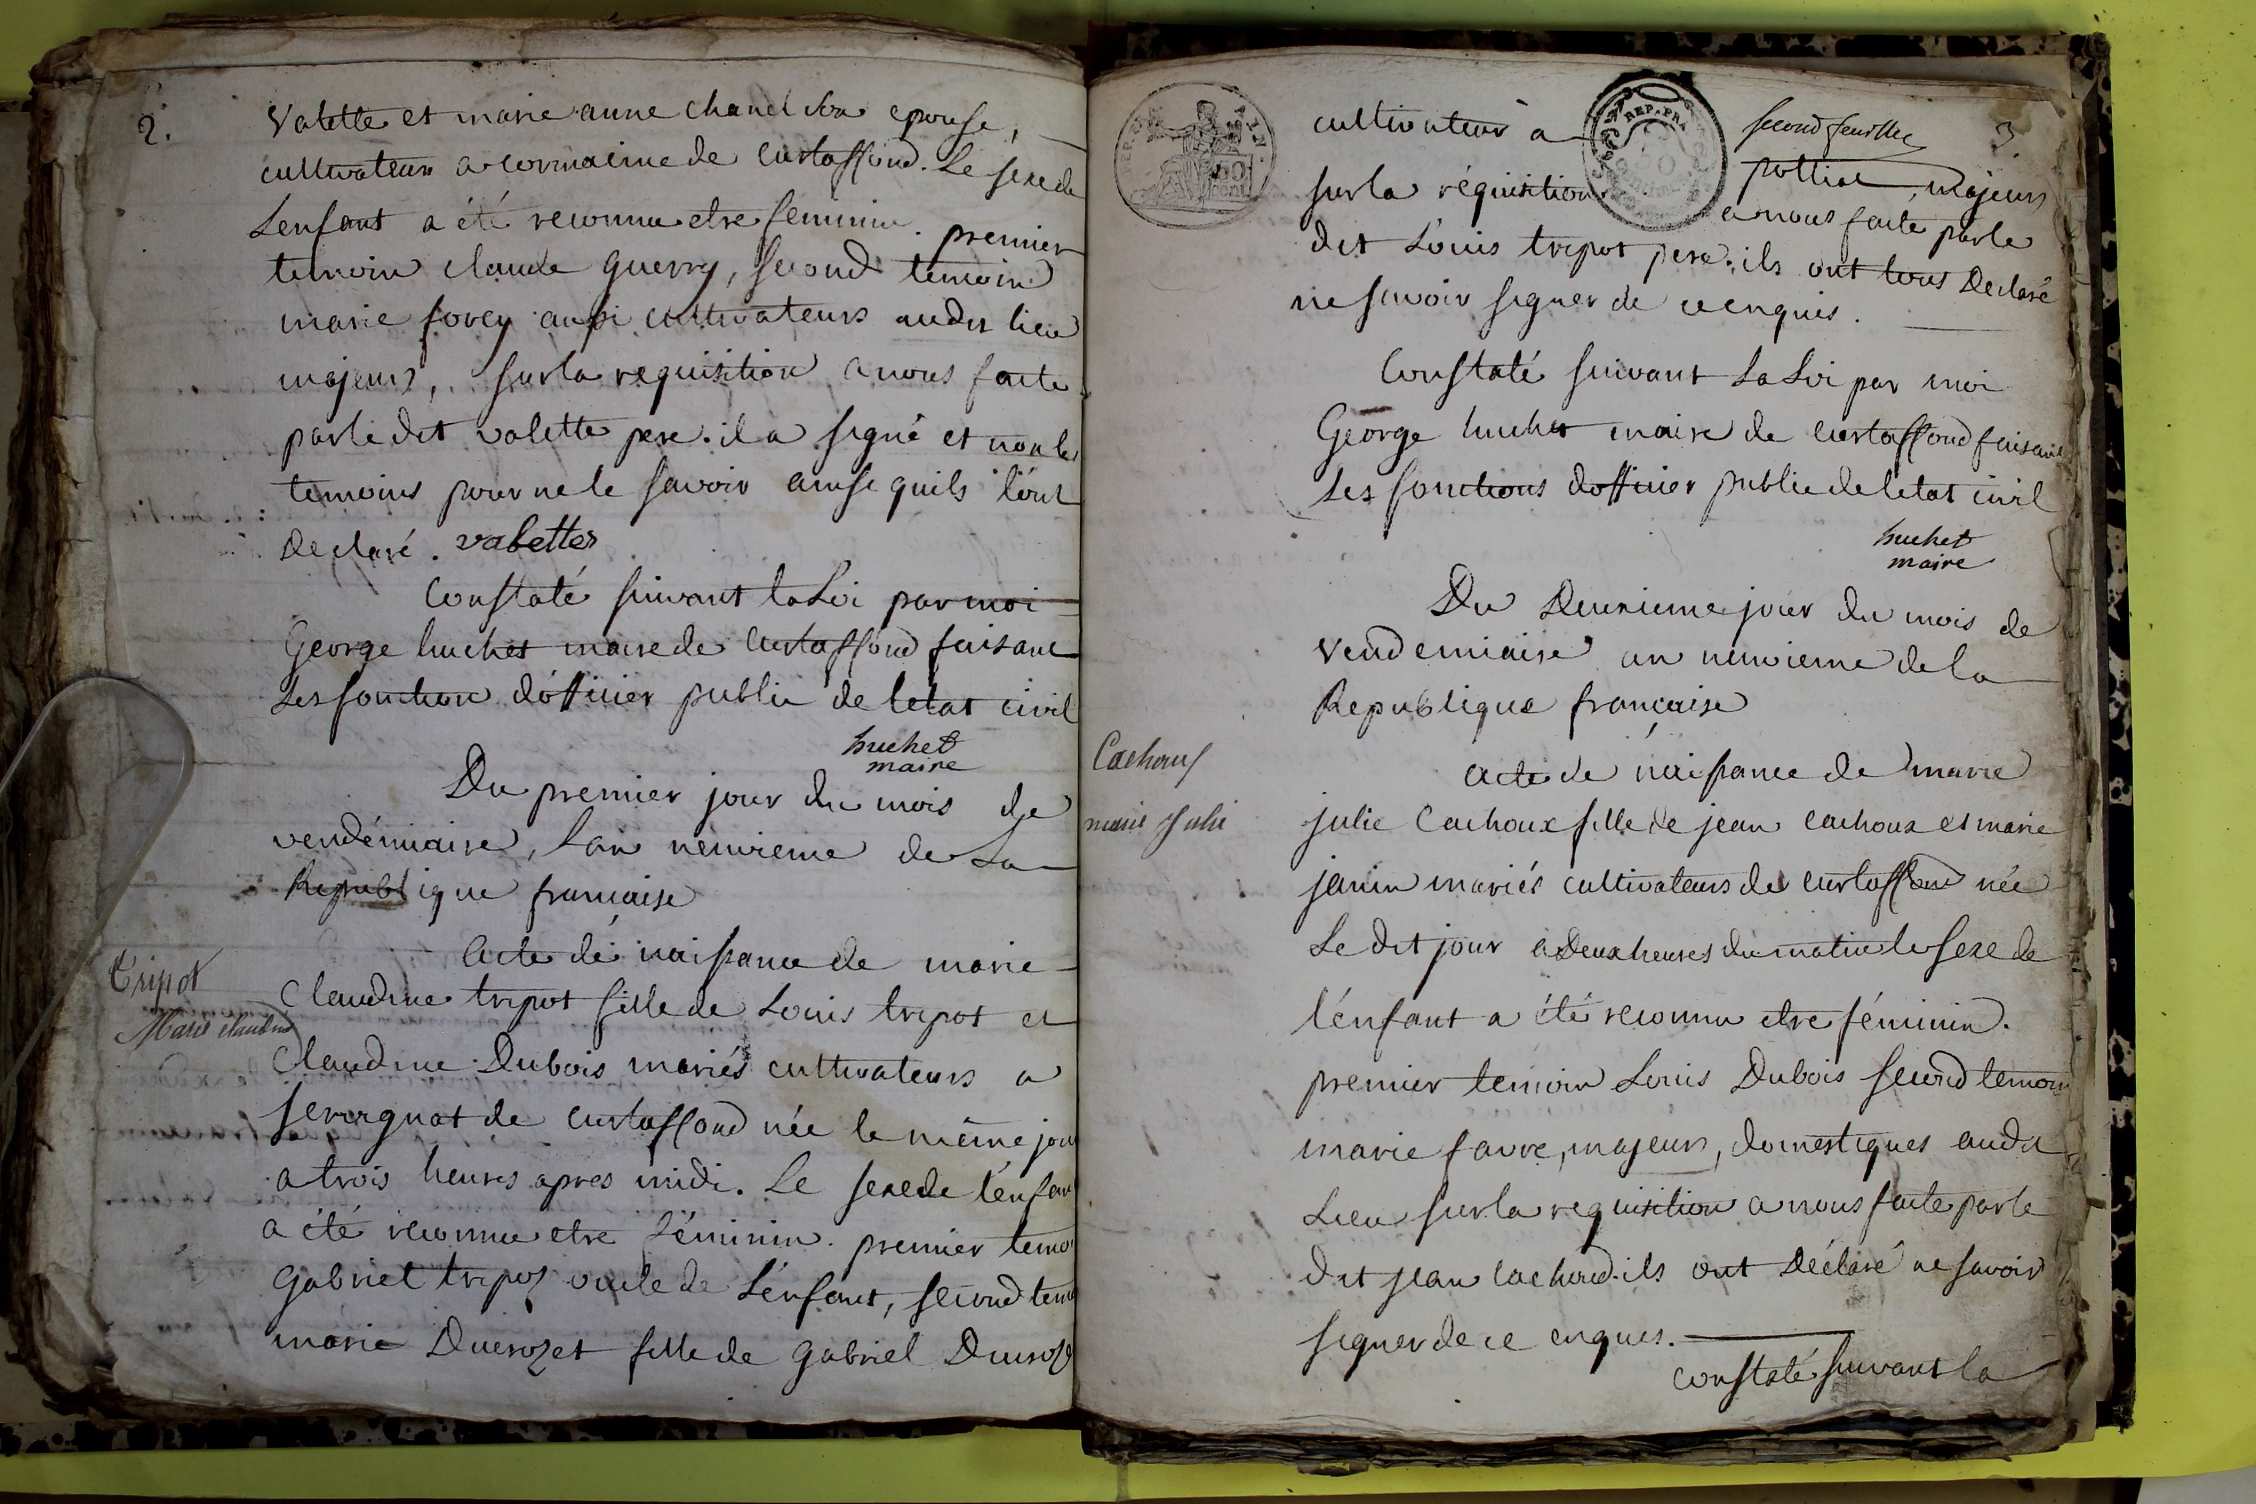 2.
Valette et marie anne chanel son epouse,
cultivateurs a cormacine de curtaffond. Le sexe de
L'enfant a été reconnu etre feminin. premier
temoin claude guerry, second temoin
marie forey aussi cultivateurs audit lieu
majeurs, sur la requisition a nous faite
par le dit valette pere. il a signé et non les
temoins pour ne le savoir ainsi quils l'ont
Declaré. valette
Constaté suivant la Loi par moi
George huchet maire de Curtaffond faisant
Les fonction dofficier public de letat civil
huchet
maire
Du premier jour du mois de
vendémiaire, L'an neuvieme de La
Republique francaise
Tripot
Marie claudine
Acte de naissance de marie
Claudine tripot fille de Louis tripot et
Claudine Dubois mariés cultivateurs a
sevignat de curtaffond née le même jour
a trois heures apres midi. Le sexe de l'enfant
a été reconnu etre féminin. premier temoi
Gabriel tripoz oncle de L'enfant, second tem
marie Ducrozet fille de Gabriel Ducroze
REP. FRA.
50
cent.
REP. FRA.
second feuillet
3
cultivateur a pottiat, majeurs
sur la réquisition a nous faite par le
dit Louis tripot pere. ils ont tous Declaré
ne savoir signer de ce enquis.
Constaté suivant La Loi par moi
George huchet maire de Curtaffond faisant
Les fonctions dofficier public de letat civil
huchet
maire
Du Deuxieme jour du mois de
vendemiaire an neuvieme de la
Republique française
Cachoux
marie Julie
acte de naissance de marie
julie Cachoux fille de jean cachoux et marie
janin mariés cultivateurs de curtaffond née
Le dit jour a Deux heures du matin le sexe de
l'énfant a été reconnu etre féminin.
premier temoin Louis Dubois second temoin
marie favre, majeurs, domestiques audit
Lieu sur la requisition a nous faite par le
dit jean cachoud. ils ont Déclaré ne savoir
signer de ce enquis.
constaté suivant la